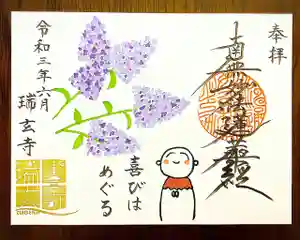 奉拝
南無妙法蓮華経
喜びは
めぐる
令和三年六月
瑞玄寺